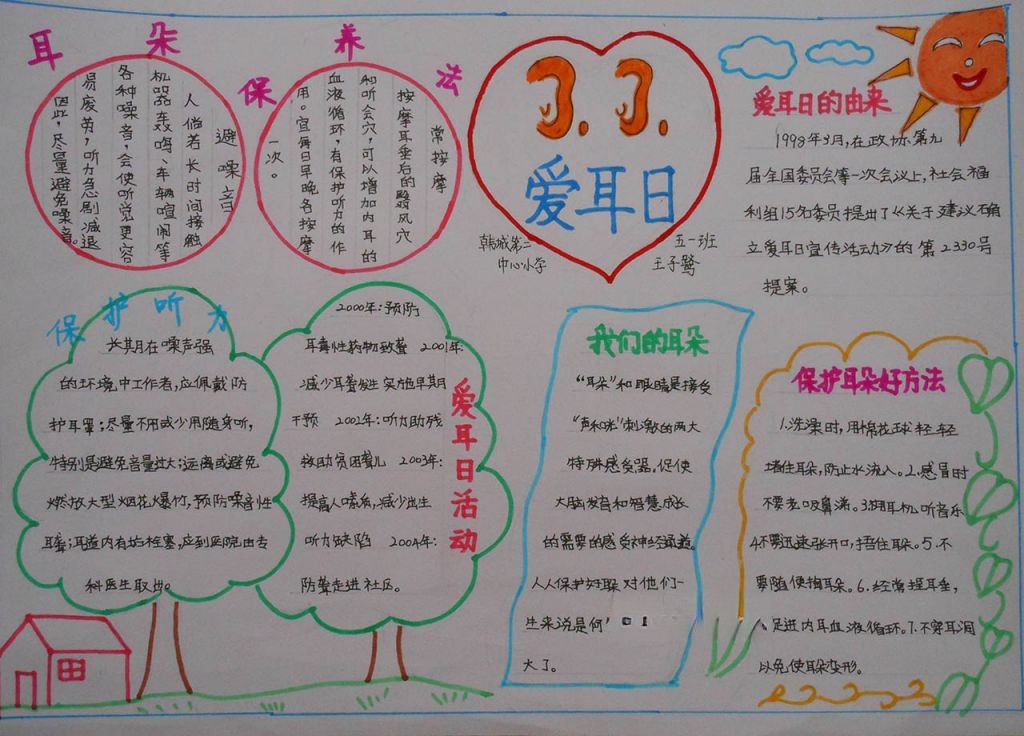 耳朵保养法
避噪音
人倘若长时间接触
机器轰鸣、车辆喧闹等
各种噪音,会使听觉更容
易疲劳,听力急剧减退
因此,尽量避免噪音。
常按摩
按摩耳垂后的翳风穴
和听会穴,可以增加内耳的
血液循环,有保护听力的作
用。宜每日早晚各按摩
一次。
3.3.
爱耳日
韩城第二
中心小学
五一班
爱耳日的由来
1998年3月,在政协第九
届全国委员会第一次会议上,社会福
利组15名委员提出了《关于建议确
立爱耳日宣传活动》的第2330号
提案。
保护听力
长期在噪声强
的环境中工作者,应佩戴防
护耳罩;尽量不用或少用随身听,
特别是避免音量过大;远离或避免
燃放大型烟花爆竹,预防噪音性
耳聋;耳道内有
应到医院由专
科医生取出。
爱耳日活动
2000年:预防
耳毒性药物致聋 2001年:
减少耳聋发生 实施早期
干预 2002年:听力助残
救助贫困聋儿 2003年:
提高人口素质,减少出生
听力缺陷 2004年:
防聋走进社区。
我们的耳朵
“耳朵”和眼睛是接受
刺激的两大
特殊感受器,促使
大脑发育和智慧成长
的需要的感受神经通道。
人人保护好耳朵对他们一
生来说是何
大了。
保护耳朵好方法
1.洗澡时,用棉花球轻轻
堵住耳朵,防止水流入。2.感冒时
不要老吸鼻涕。3.
耳机听音乐
4.不要迅速张开口,捂住耳朵。5.不
要随便掏耳朵。6.经常捏耳垂,
促进内耳血液循环。7.不穿耳洞
以免使耳朵变形。